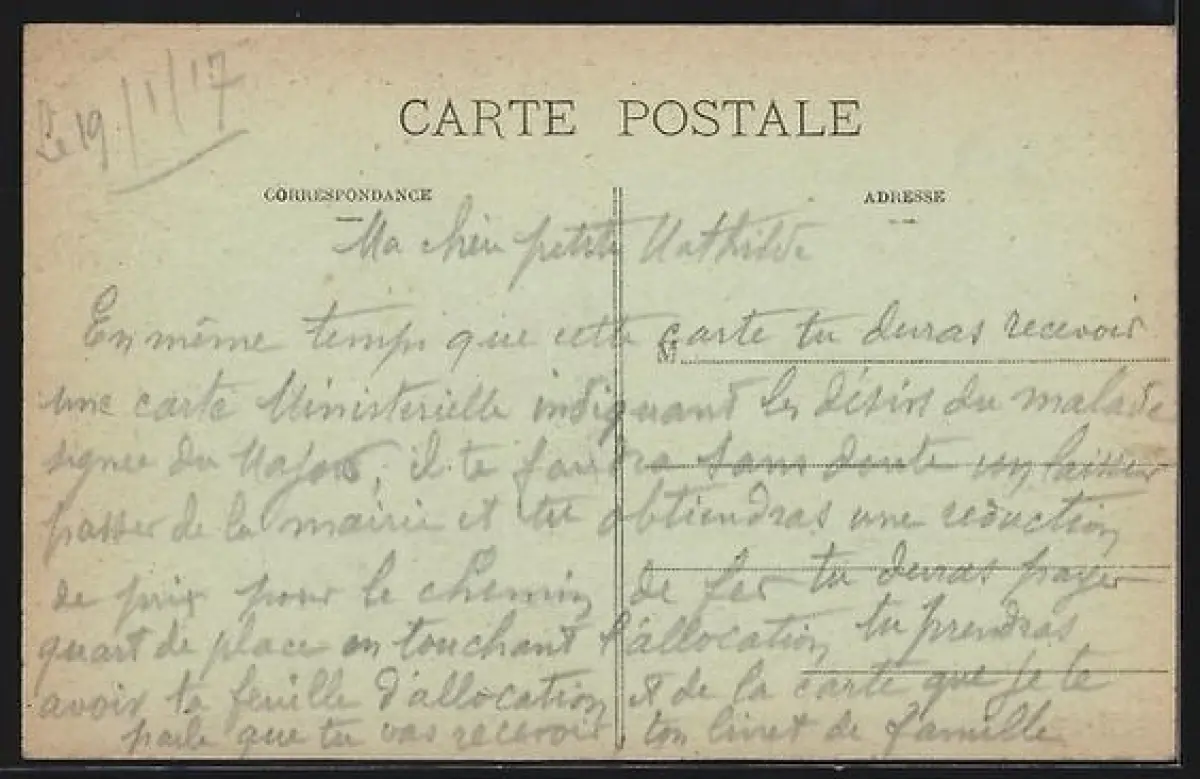 Le 19/1/17
CARTE POSTALE
CORRESPONDANCE
ADRESSE
Ma chère petite Mathilde
En même temps que cette carte tu devras recevoir
M
une carte Ministérielle indiquant les désirs du malade
signée du Major, il te faudra sans doute un laisser
passer de la mairie et tu obtiendras une réduction
de prix pour le chemin de fer tu devras payer
quart de place en touchant l'allocation tu prendras
avoir ta feuille d'allocation et de la carte que je te
parle que tu vas recevoir ton livret de famille